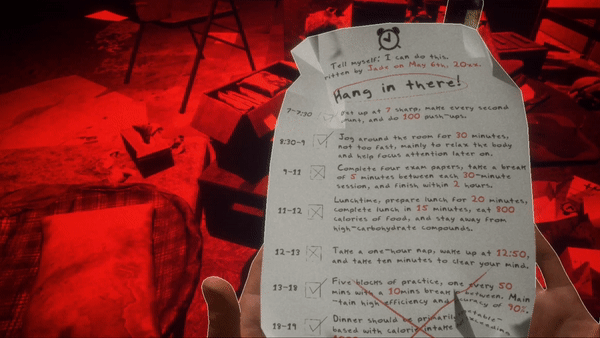 Tell myself: I can do this.
ritten by Jade on May 6th, 20xx.
Hang in there!
7-7:30 et up at 7 sharp, make every second
and do 100 push-ups.
8:30-9 Jog around the room for 30 minutes,
not too fast, mainly to relax the body
and help focus attention later on.
9-11 Complete four exam papers, take a break
of 5 minutes between each 30-minute
session, and finish within 2 hours.
11-12 Lunchtime, prepare lunch for 20 minutes,
complete lunch in 15 minutes, eat 800
calories of food, and stay away from
high-carbohydrate compounds.
12-13 Take a one-hour nap, wake up at 12:50,
and take ten minutes to clear your mind.
13-18 Five blocks of practice, one every 50
mins with a 10mins break between. Main
-tain high efficiency and curacy of 90%.
18-19 Dinner should be primarily
based with calorie intake